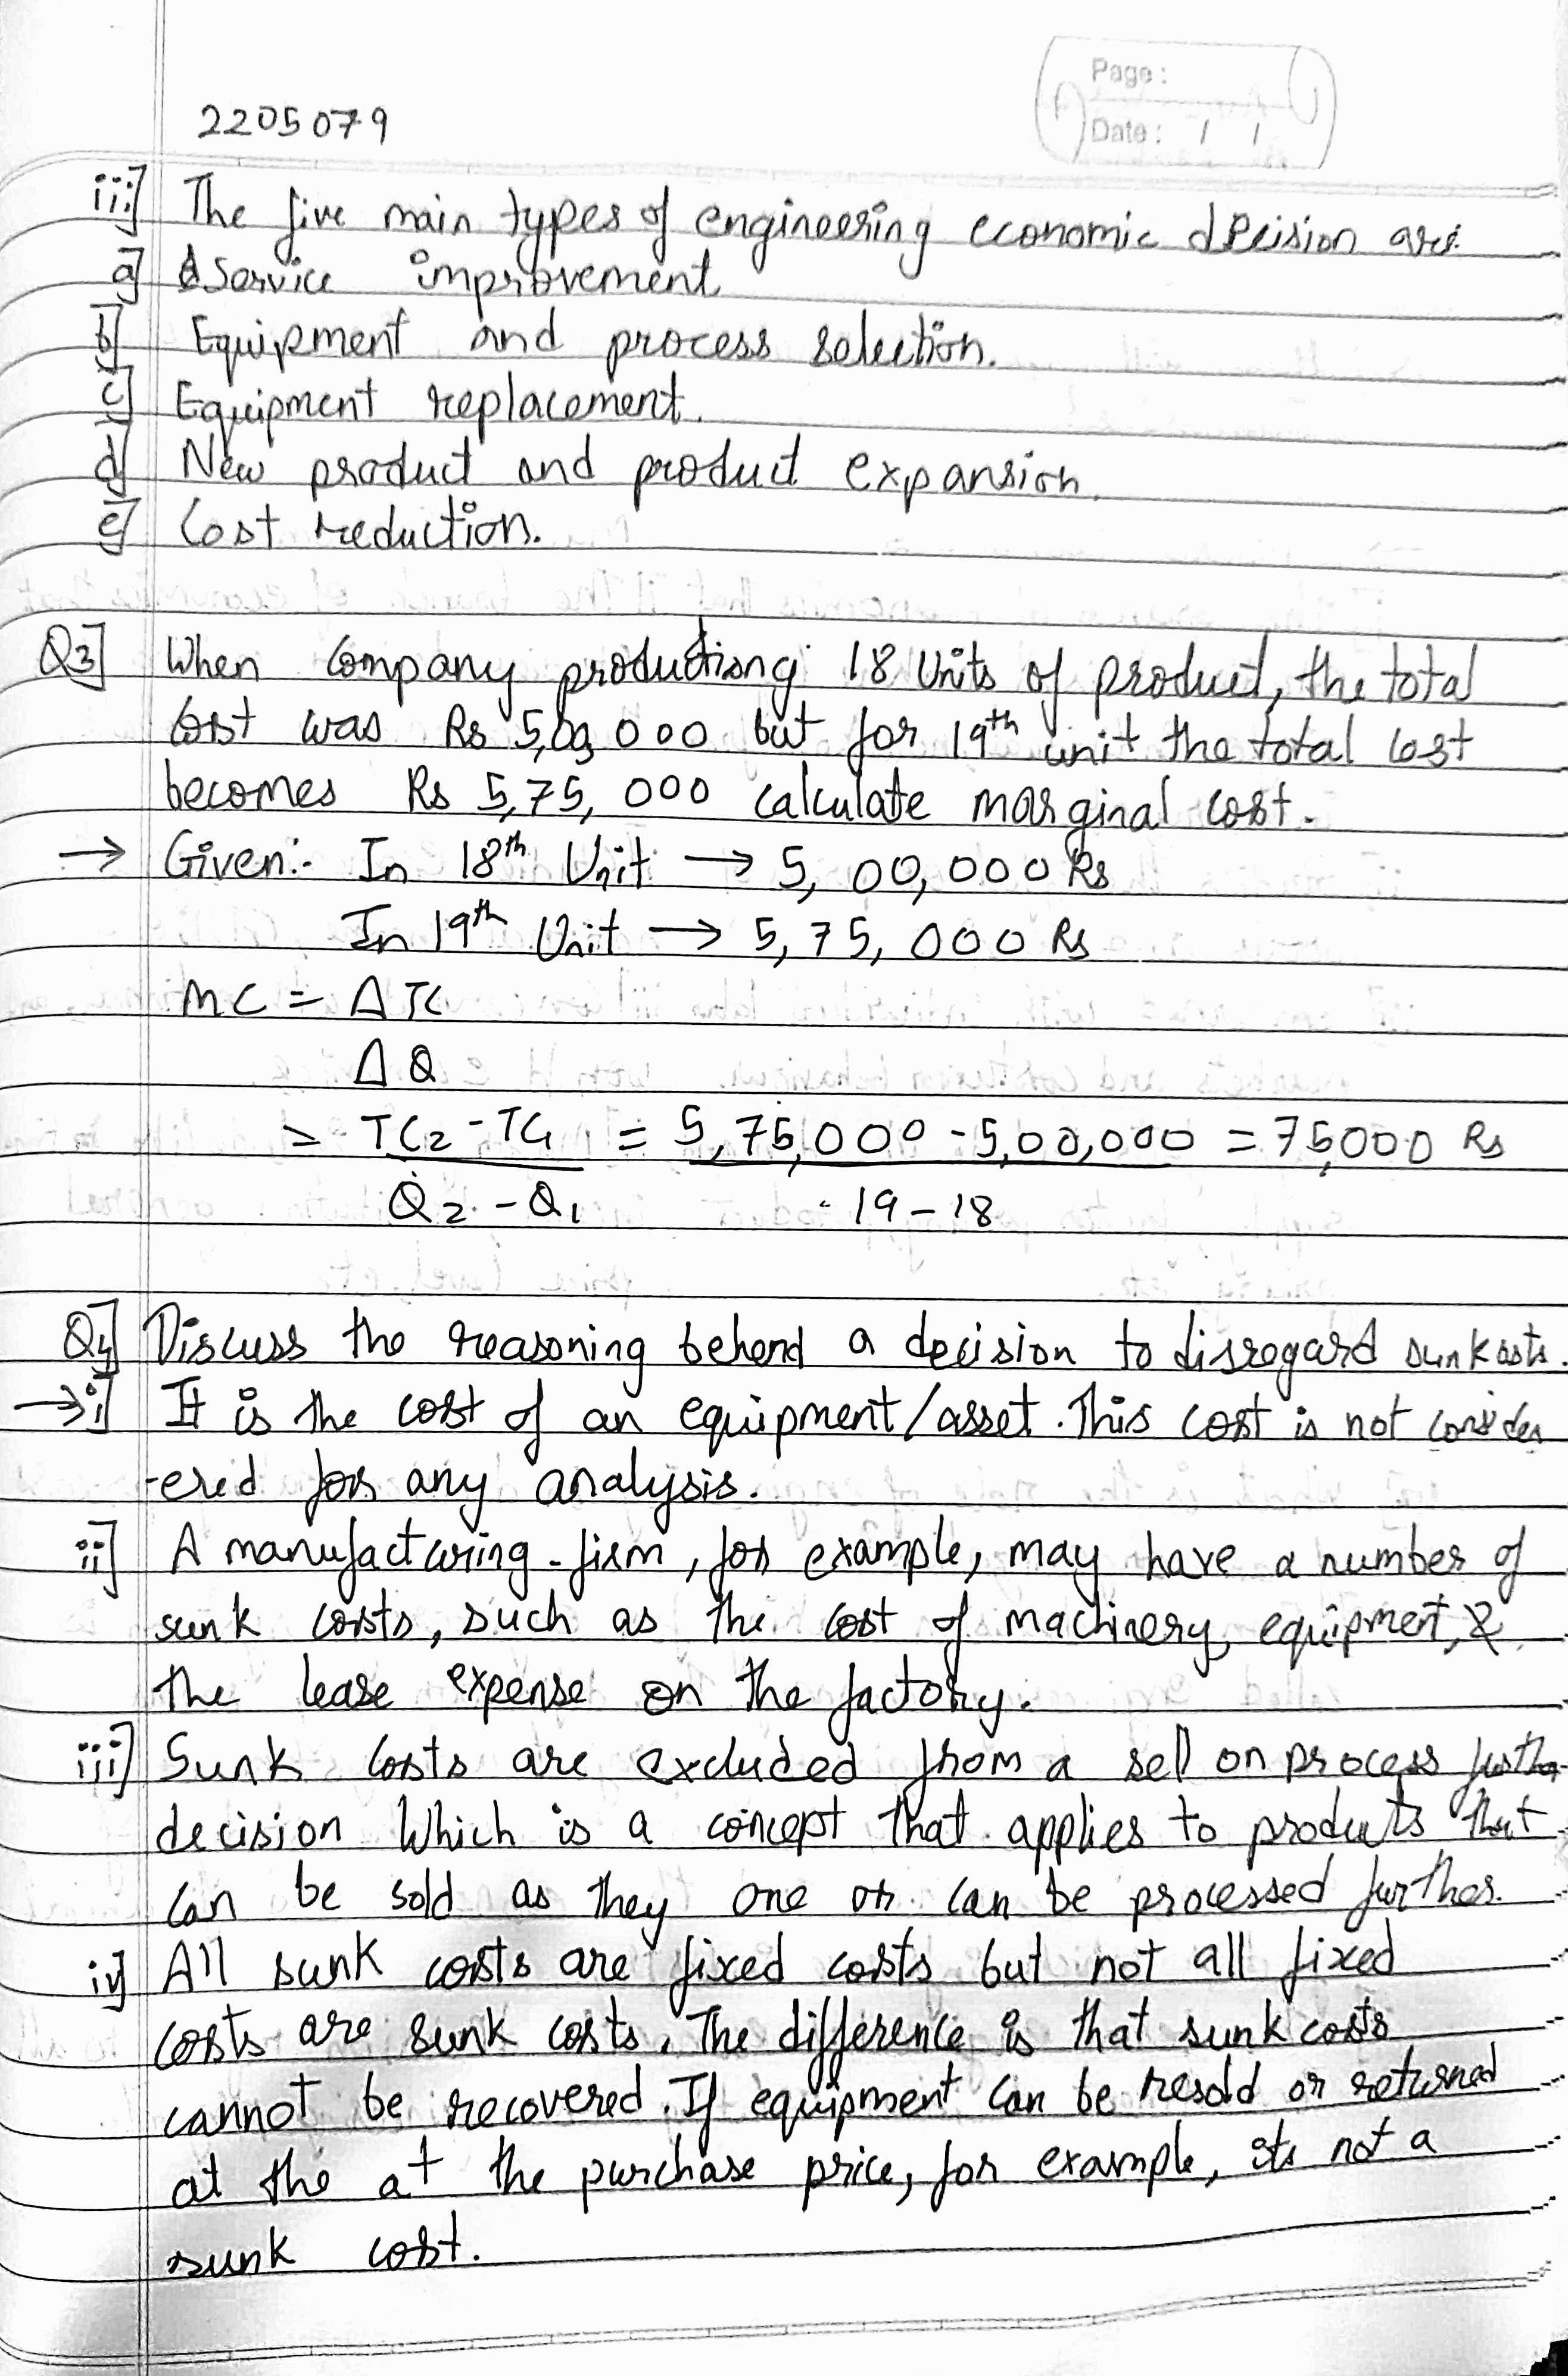 Page :
Date : / /
2205079
iii] The five main types of engineering economic decision are
a] Service improvement
b] Equipment and process selection.
c] Equipment replacement.
d] New product and product expansion.
e] Cost reduction.
Q3] When company productiong 18 Units of product, the total
cost was Rs 5,00,000 but for 19th unit the total cost
becomes Rs 5,75,000 calculate marginal cost.
→ Given:- In 18th Unit → 5,00,000 Rs
In 19th Unit → 5,75,000 Rs
MC = ΔTC
ΔQ
= TC2 - TC1 = 5,75,000 - 5,00,000 = 75,000 Rs
Q2 - Q1 19 - 18
Q4] Discuss the reasoning behend a decision to disregard sunk costs.
→ i] It is the cost of an equipment/asset. This cost is not consider
-ered for any analysis.
ii] A manufacturing firm, for example, may have a number of
sunk costs, such as the cost of machinery, equipment, &
the lease expense on the factory.
iii] Sunk costs are excluded from a sell on process further
decision Which is a concept that applies to products that
can be sold as they one or can be processed further.
iv] All sunk costs are fixed costs but not all fixed
costs are sunk costs. The difference is that sunk costs
cannot be recovered. If equipment can be resold or returned
at the at the purchase price, for example, its not a
sunk cost.